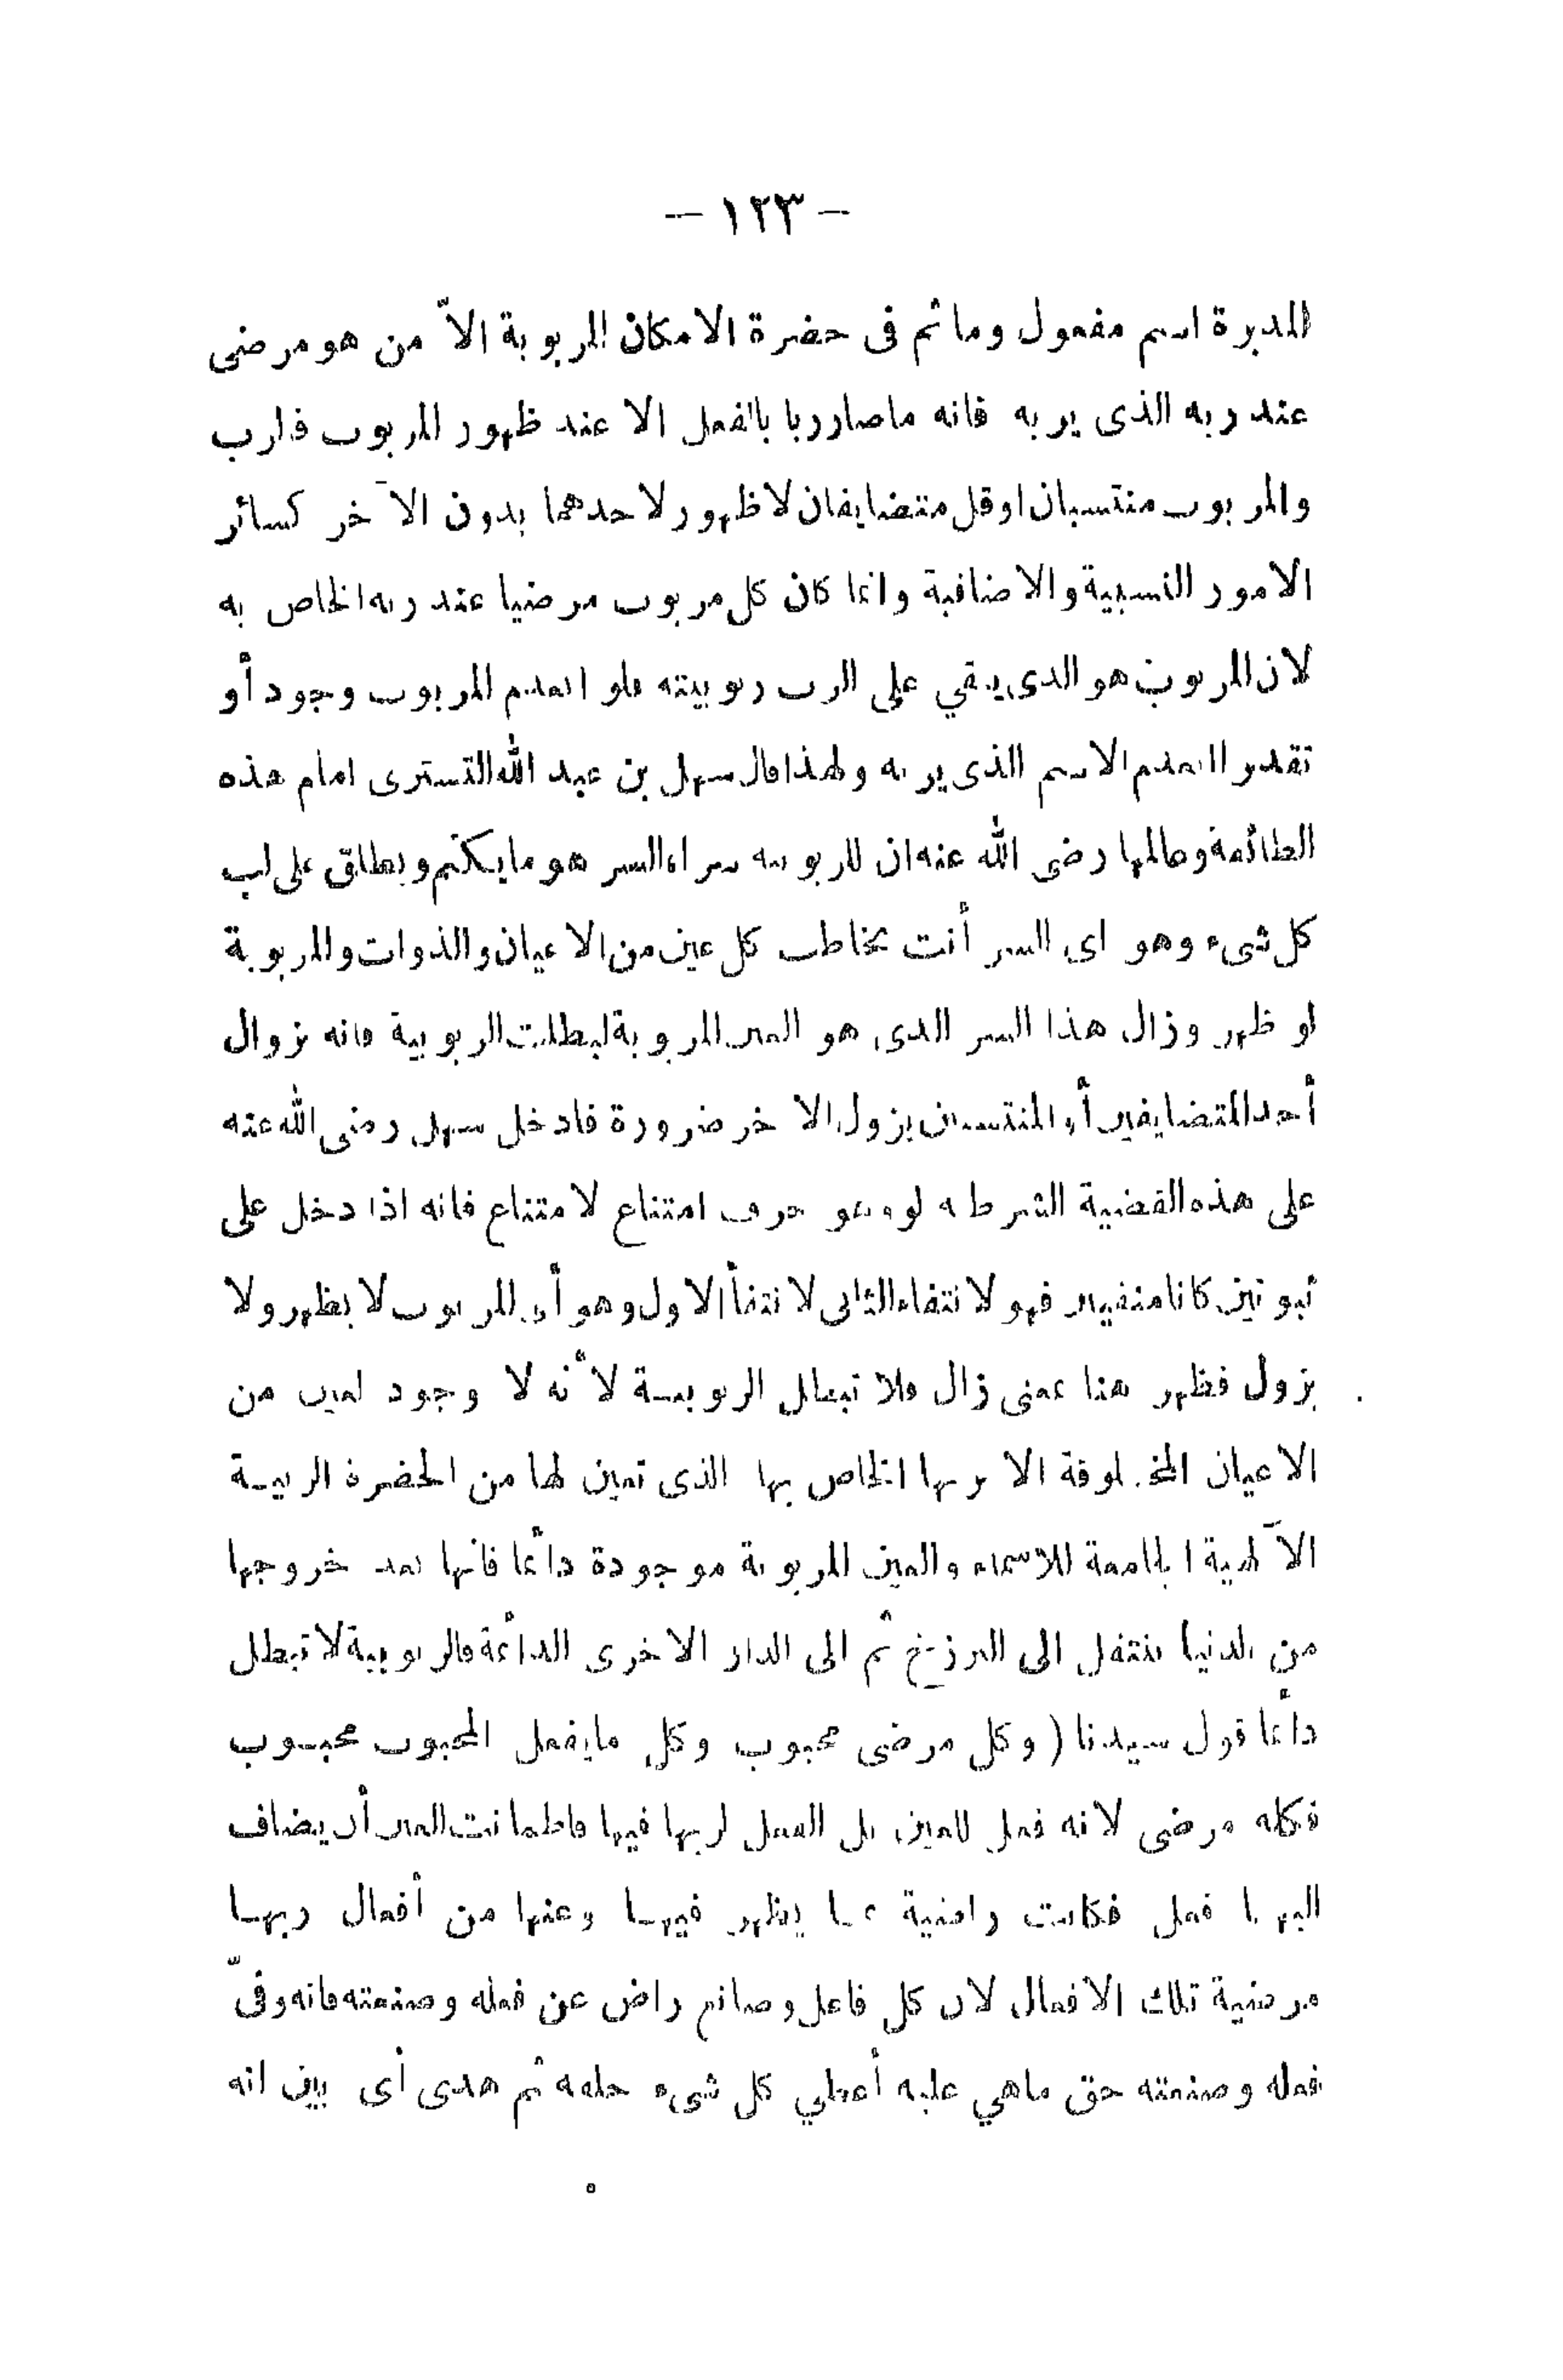 — ١٢٣ —
المدبرة اسم مفعول وما ثم فى حضرة الامكان المربوبة الاّ من هو مرضى
عند ربه الذى يربه فانه ما صار ربا بالفعل الا عند ظهور المربوب فارب
والمربوب منتسبان او قل متضايفان لا ظهور لاحدهما بدون الآخر كسائر
الامور النسبية والاضافية وانما كان كل مربوب مرضيا عند ربه الخاص به
لان المربوب هو الذى يبقي على الرب ربوبيته فلو انعدم المربوب وجودا أو
تقديرا انعدم الاسم الذى يربه ولهذا قال سهل بن عبد الله التسترى امام هذه
الطائفة وعالمها رضى الله عنه ان للربوبية سرا والسر هو ما يكتم ويطلق على لب
كل شىء وهو اى السر أنت يخاطب كل عين من الاعيان والذوات والمربوبة
لو ظهر وزال هذا السر الذى هو العين المربوبة لبطلت الربوبية فانه بزوال
أحد المتضايفين أو المنتسبين يزول الاخر ضرورة فادخل سهل رضى الله عنه
على هذه القضية الشرطية لو وهو حرف امتناع لامتناع فانه اذا دخل على
ثبوتين كانا منفيين فهو لانتفاء الثانى لانتفأ الاول وهو أى المربوب لا يظهر ولا
يزول فظهر هنا بمعنى زال فلا تبطل الربوبيـة لأنه لا وجود لعين من
الاعيان المخلوقة الا بربها الخاص بها الذى تعين لها من الحضرة الربيـة
الآلهية الجامعة للاسماء والعين المربوبة موجودة دائما فانها بعد خروجها
من الدنيا تنتقل الى البرزخ ثم الى الدار الاخرى الدائمة فالربوبية لا تبطل
دائما قول سيدنا ( وكل مرضى محبوب وكل ما يفعل المحبوب محبـوب
فكله مرضى لانه فعل للعين بل الفعل لربها فيها فاطمانت العين أن يضاف
اليها فعل فكانت راضية بمـا يظهر فيهـا وعنها من أفعال ربهـا
مرضية تلك الافعال لان كل فاعل وصانع راض عن فعله وصنعته فانه وفىّ
فعله وصنعته حق ماهي عليه أعطي كل شىء خلقه ثم هدى أى بين انه